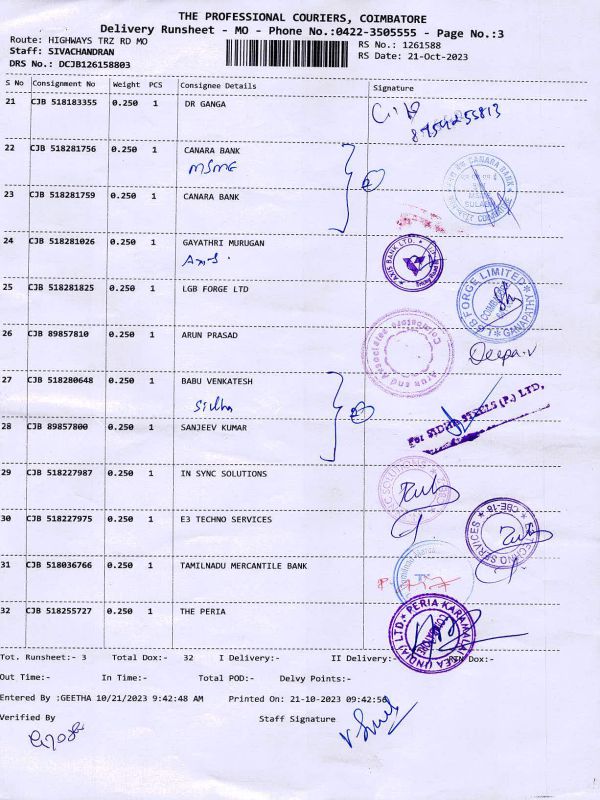 THE PROFESSIONAL COURIERS, COIMBATORE
Delivery Runsheet - MO - Phone No.:0422-3505555 - Page No.:3
Route: HIGHWAYS TRZ RD MO
RS No.: 1261588
Staff: SIVACHANDRAN
RS Date: 21-Oct-2023
DRS No.: DCJB126158803
S No Consignment No Weight PCS Consignee Details Signature
21 CJB 518183355 0.250 1 DR GANGA
22 CJB 518281756 0.250 1 CANARA BANK
MSME
CANARA BANK
23 CJB 518281759 0.250 1 CANARA BANK
24 CJB 518281026 0.250 1 GAYATHRI MURUGAN
Axis
AXIS BANK LTD.
25 CJB 518281825 0.250 1 LGB FORGE LTD
LGB FORGE LIMITED GANAPATHY
26 CJB 89857810 0.250 1 ARUN PRASAD
Arun and Associates Coimbatore
Deepa.v
27 CJB 518280648 0.250 1 BABU VENKATESH
Sidhu
For SIDHU STEELS (P.) LTD.
28 CJB 89857800 0.250 1 SANJEEV KUMAR
29 CJB 518227987 0.250 1 IN SYNC SOLUTIONS
30 CJB 518227975 0.250 1 E3 TECHNO SERVICES
TECHNO SERVICES CBE-18
31 CJB 518036766 0.250 1 TAMILNADU MERCANTILE BANK
32 CJB 518255727 0.250 1 THE PERIA
PERIA KARAMALAI TEA (INDIA) LTD. COIMBATORE
Tot. Runsheet:- 3 Total Dox:- 32 I Delivery:- II Delivery:- RTN Dox:-
Out Time:- In Time:- Total POD:- Delvy Points:-
Entered By :GEETHA 10/21/2023 9:42:48 AM Printed On: 21-10-2023 09:42:56
Verified By Staff Signature